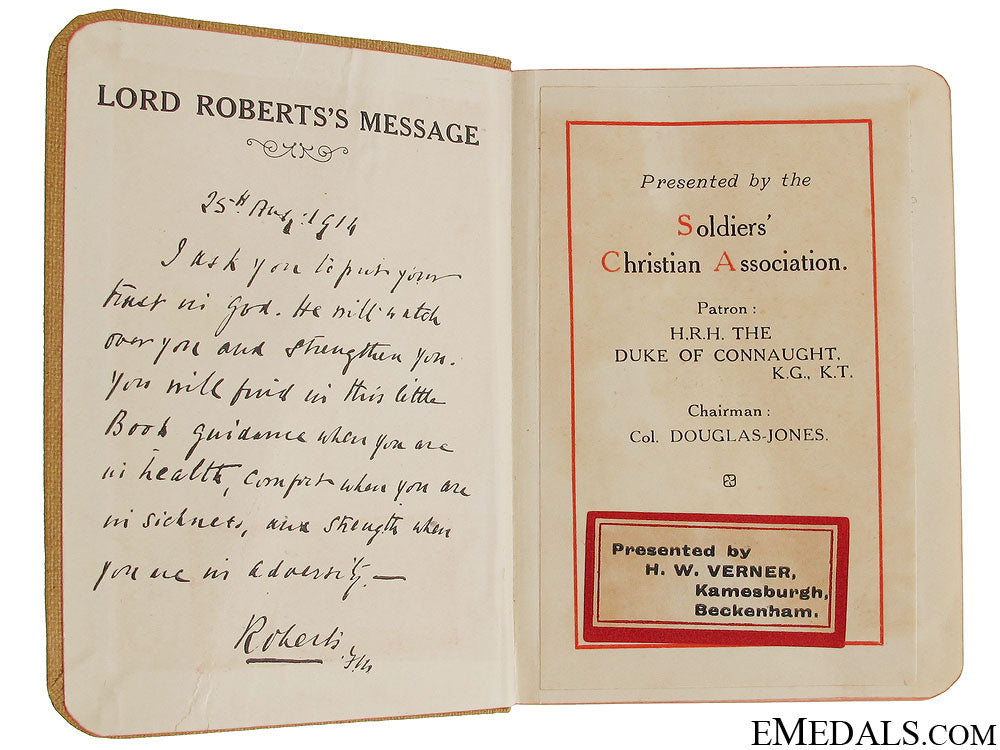 LORD ROBERTS'S MESSAGE
25th Aug. 1914
I ask you to put your
trust in God. He will watch
over you and strengthen you.
You will find in this little
Book guidance when you are
in health, comfort when you are
in sickness, and strength when
you are in adversity.—
Roberts
F.M.
Presented by the
Soldiers'
Christian Association.
Patron :
H.R.H. THE
DUKE OF CONNAUGHT,
K.G., K.T.
Chairman :
Col. DOUGLAS-JONES.
Presented by
H. W. VERNER,
Kamesburgh,
Beckenham.
EMEDALS.COM